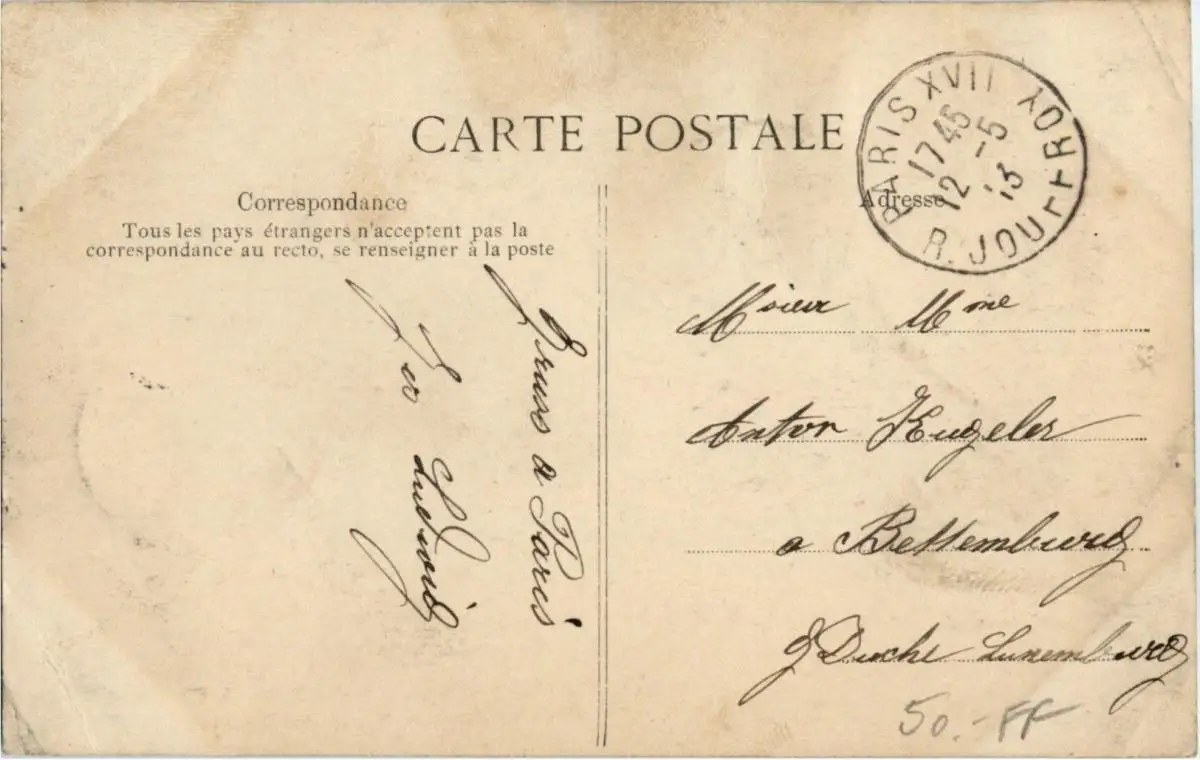 CARTE POSTALE
Correspondance
Tous les pays étrangers n'acceptent pas la
correspondance au recto, se renseigner à la poste
Adresse
PARIS XVII
R. JOUFFROY
17 45
12 -5
13
a Paris
Ludwig
Msieur Mme
Anton Kugeler
a Bettemburg
G Duche Luxemburg
50.- FF